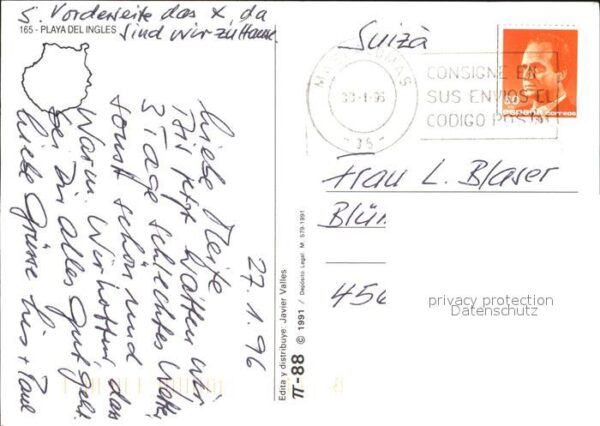 s. Vorderseite das X, da
sind wir zu Hause
165 - PLAYA DEL INGLES
27.1.96
Liebe
Bis jetzt hatten wir
3 Tage schlechtes Wetter
sonst schön und
warm. Wir hoffen, dass
bei Dir alles gut geht.
Liebe Grüsse Lis + Paul
Edita y distribuye: Javier Valles
π-88 © 1991 / Depósito Legal: M. 579-1991
Suiza
MASPALOMAS
-1-96
-35-
CONSIGNE EN
SUS ENVIOS EL
CODIGO POSTAL
ESPAÑA CORREOS
Frau L. Blaser
Blü
456
privacy protection
Datenschutz